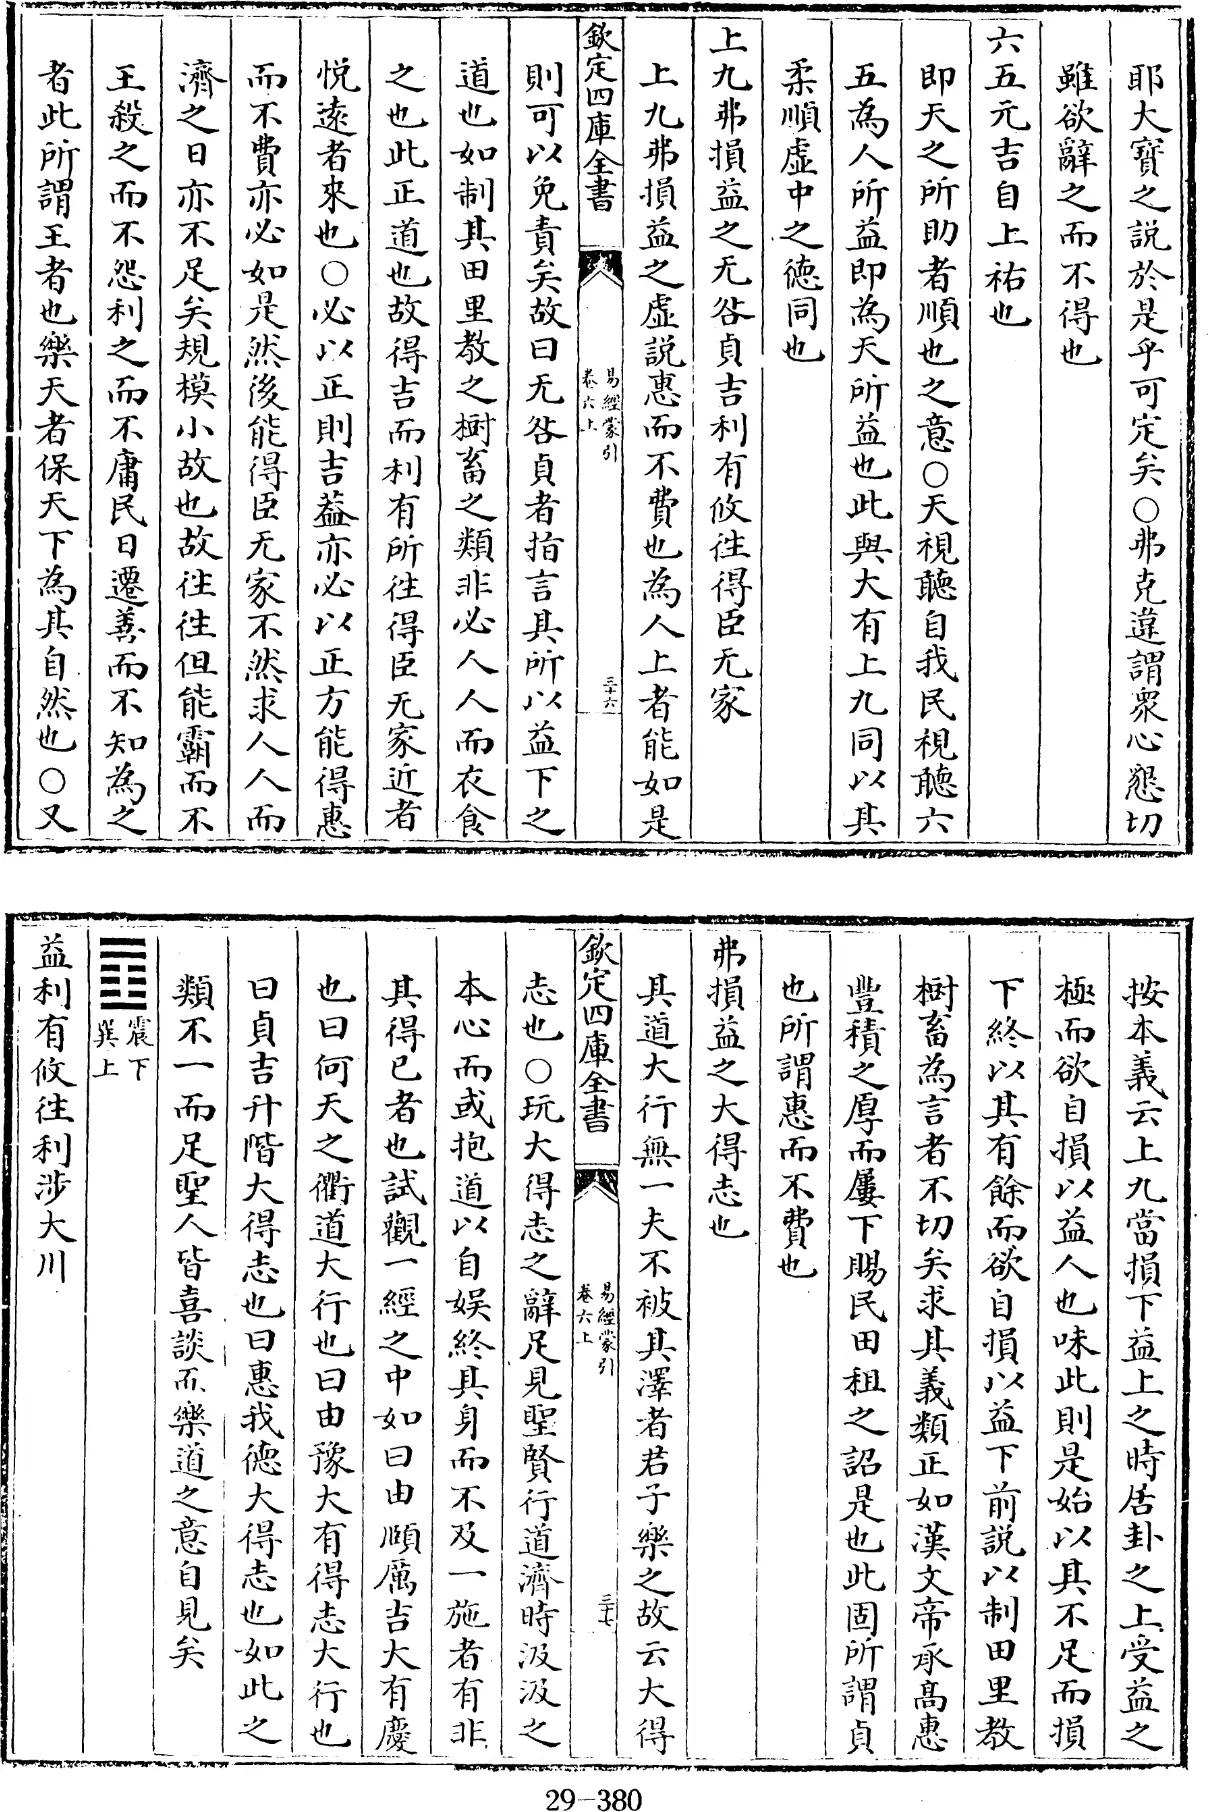 耶大寳之說於是乎可定矣○弗克違謂衆心懇切
雖欲辭之而不得也
六五元吉自上祐也
即天之所助者順也之意○天視聽自我民視聽六
五為人所益即為天所益也此與大有上九同以其
柔順虛中之德同也
上九弗損益之无咎貞吉利有攸往得臣无家
上九弗損益之虛說惠而不費也為人上者能如是
欽定四庫全書
易經蒙引
卷六上
三十六
則可以免責矣故曰无咎貞者指言其所以益下之
道也如制其田里教之樹畜之類非必人人而衣食
之也此正道也故得吉而利有所往得臣无家近者
悅遠者來也○必以正則吉葢亦必以正方能得惠
而不費亦必如是然後能得臣无家不然求人人而
濟之日亦不足矣規模小故也故往往但能霸而不
王殺之而不怨利之而不庸民日遷善而不知為之
者此所謂王者也樂天者保天下為其自然也○又
按本義云上九當損下益上之時居卦之上受益之
極而欲自損以益人也味此則是始以其不足而損
下終以其有餘而欲自損以益下前說以制田里教
樹畜為言者不切矣求其義類正如漢文帝承高惠
豐積之厚而屢下賜民田租之詔是也此固所謂貞
也所謂惠而不費也
弗損益之大得志也
其道大行無一夫不被其澤者君子樂之故云大得
欽定四庫全書
易經蒙引
卷六上
三十七
志也○玩大得志之辭足見聖賢行道濟時汲汲之
本心而或抱道以自娛終其身而不及一施者有非
其得已者也試觀一經之中如曰由頤厲吉大有慶
也曰何天之衢道大行也曰由豫大有得志大行也
曰貞吉升階大得志也曰惠我德大得志也如此之
類不一而足聖人皆喜談而樂道之意自見矣
䷩
震下
巽上
益利有攸往利涉大川
29-380